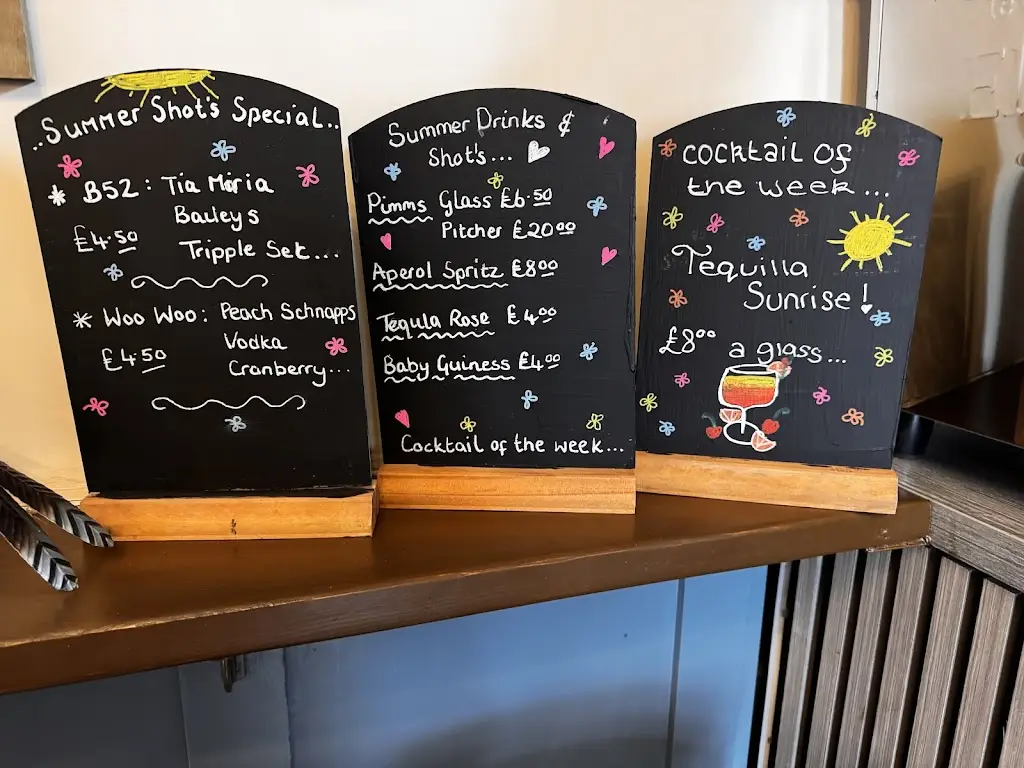 ..Summer Shot's Special..
* B52: Tia Maria
Baileys
£4.50 Tripple Sec...
* Woo Woo: Peach Schnapps
Vodka
£4.50
Cranberry...
Summer Drinks &
Shot's...
Pimms Glass £6.50
Pitcher £20.00
Aperol Spritz £8.00
Tequla Rose £4.00
Baby Guiness £4.00
Cocktail of the week...
Cocktail of
the week...
Tequilla
Sunrise!
£8.00 a glass...